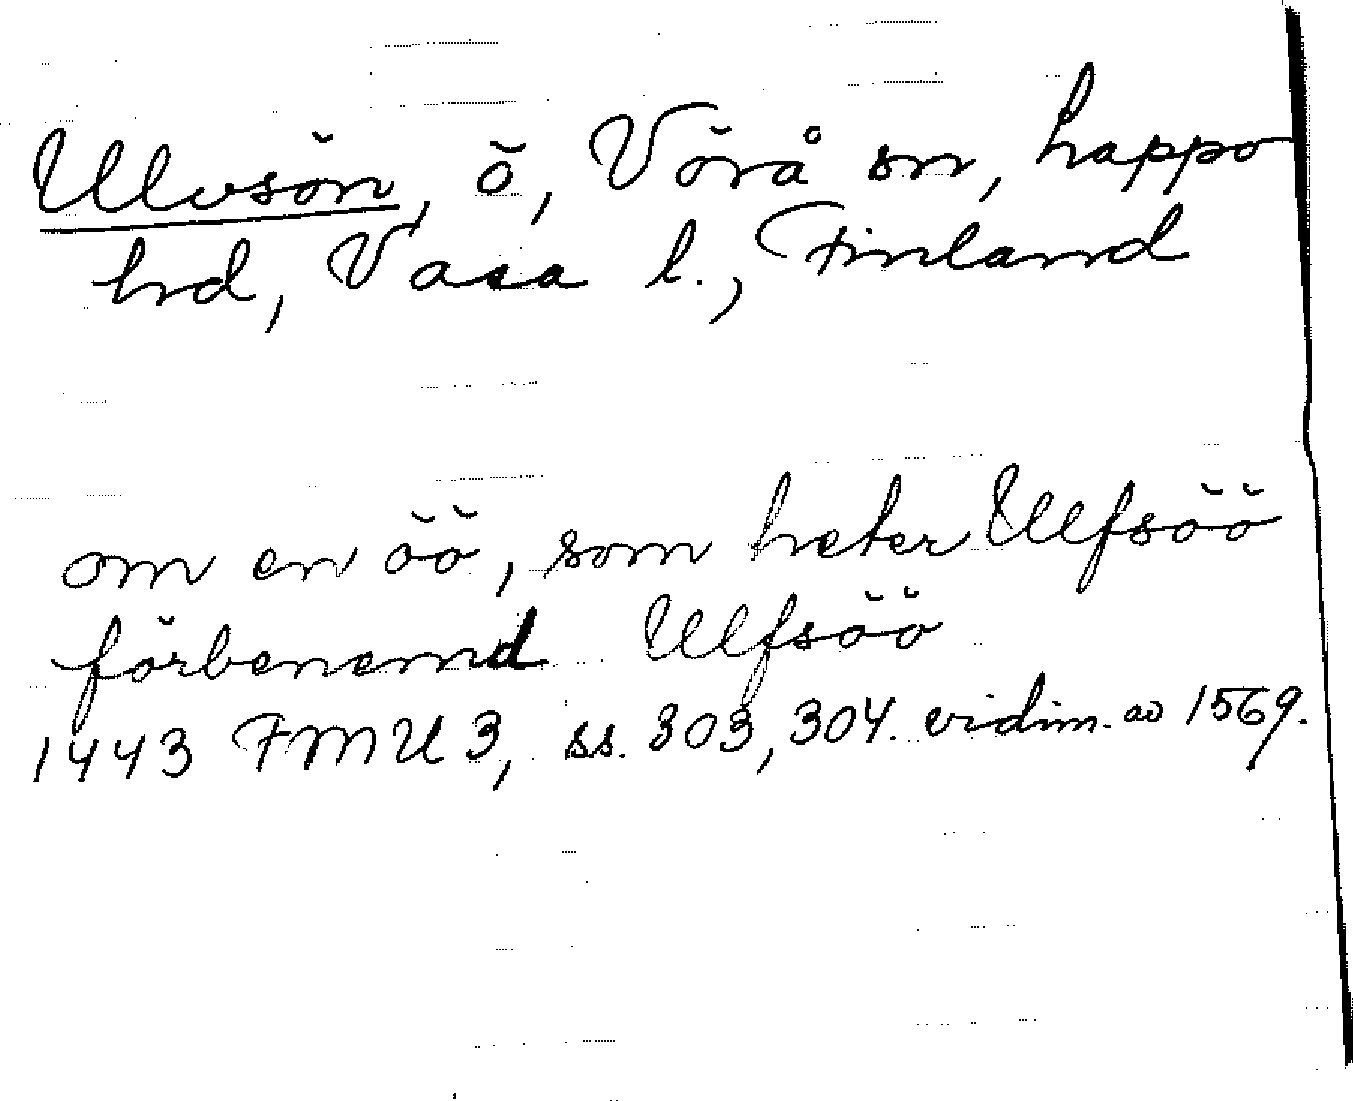 Ulvsön, ö, Vörå sn, Lappo
hd, Vasa l., Finland
om en öö, som heter Ulfsöö
förbenemd Ulfsöö
1443 FMU 3, ss. 303, 304. vidim. av 1569.